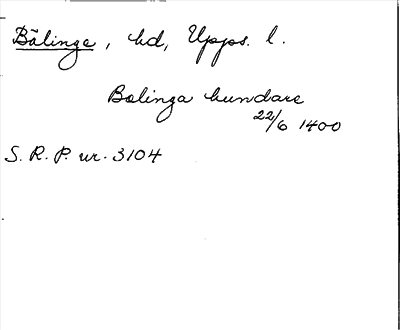 Bälinge, hd, Upps. l.
Bolinga hundare
22/6 1400
S. R. P. nr. 3104